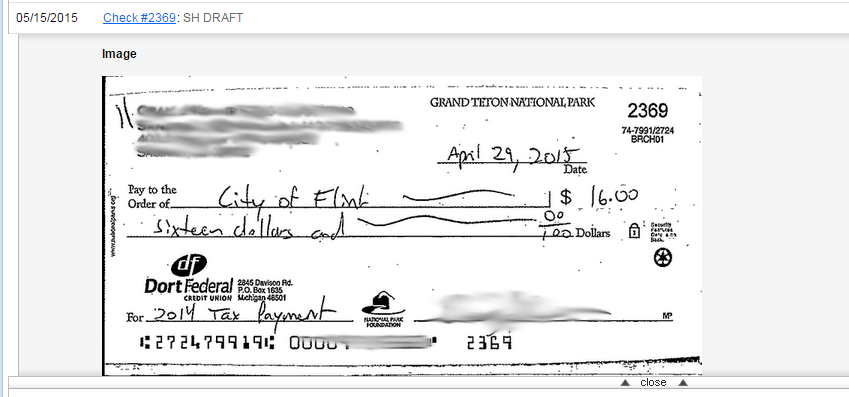 05/15/2015 Check #2369: SH DRAFT
Image
GRAND TETON NATIONAL PARK
2369
74-7991/2724
BRCH01
April 29, 2015
Date
Pay to the
Order of City of Flint $ 16.00
sixteen dollars and 00/100 Dollars
Security
Features
Back.
www.nationalparks.org
df
Dort Federal
CREDIT UNION
2845 Davison Rd.
P.O. Box 1635
Michigan 48501
For 2014 Tax Payment
NATIONAL PARK
FOUNDATION
MP
⑆272479919⑆ 0000 2369
close